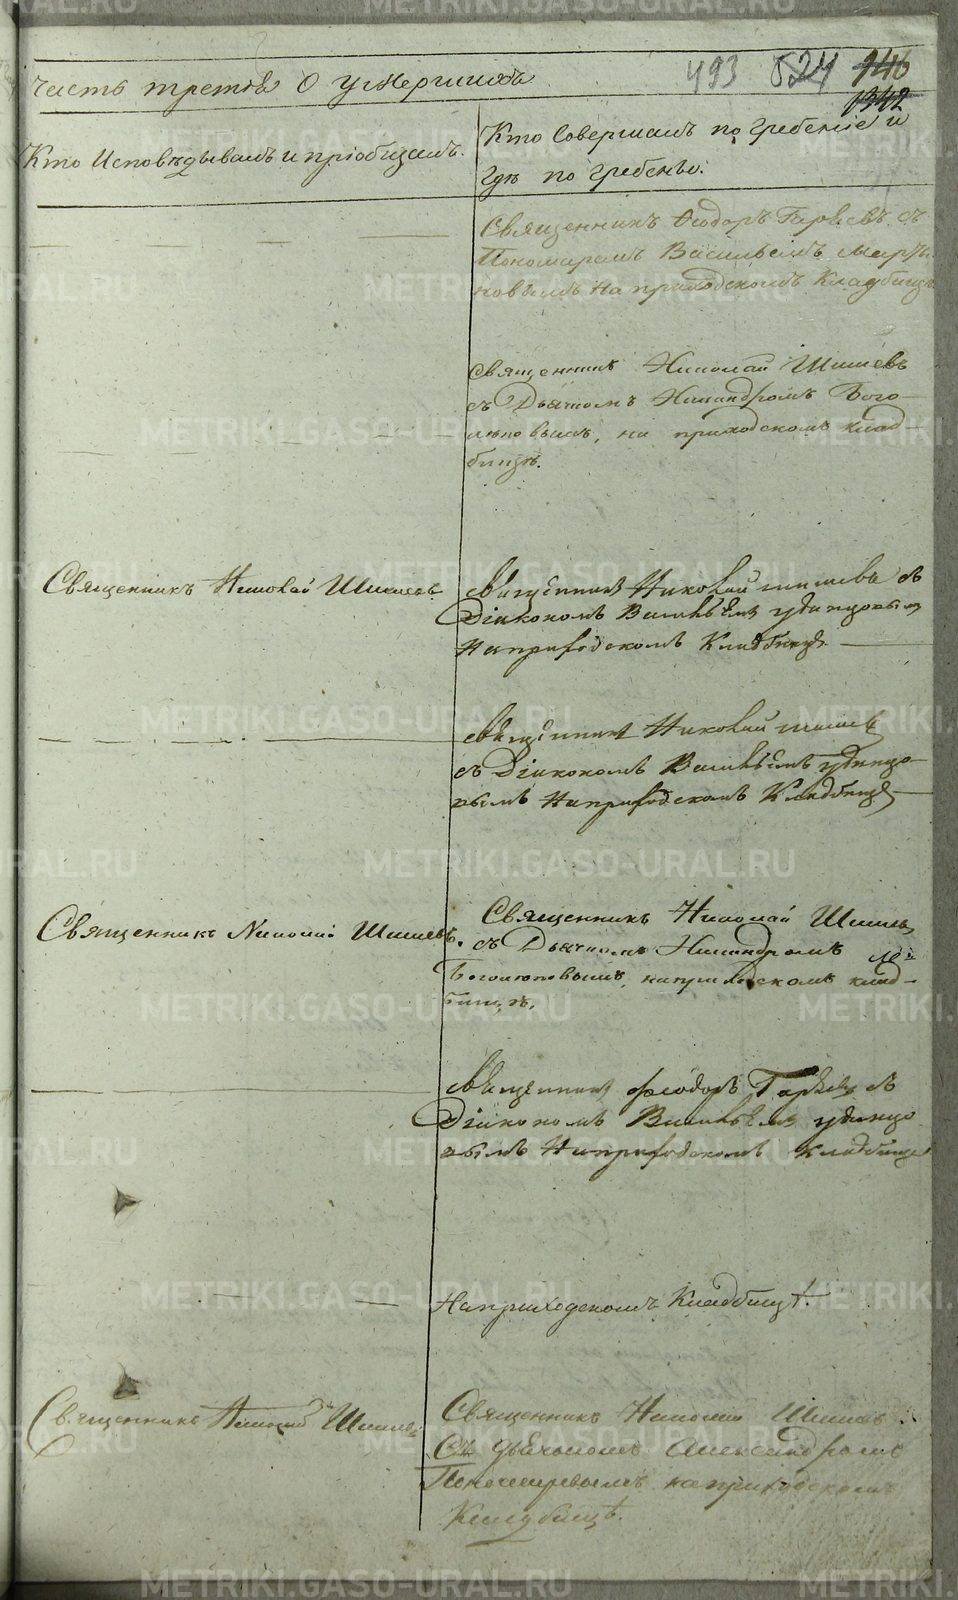 493 524 946
1342
Часть третія О умершихъ
Кто Исповѣдывалъ и пріобщалъ.
Кто Совершалъ по гребеніе и
гдѣ по гребены.
Священникъ Ѳеодоръ с
Пономаремъ Васильемъ Марты
новымъ на приходскомъ Кладбищѣ
Священникъ Николай Шишевъ
съ Дьячкомъ Никандромъ Бого-
люповымъ, на приходскомъ клад-
бищѣ.
Священникъ Николай Шишевъ
Священникъ Николай Шишевъ съ
Діакономъ Васильемъ Удинцовымъ
На приходскомъ Кладбищѣ
Священникъ Николай Шишевъ
съ Діакономъ Васильемъ Удинцо-
вымъ На приходскомъ Кладбищѣ
Священникъ Николай Шишевъ.
Священникъ Николай Шишевъ
съ Дьячкомъ Никандромъ
Боголюповымъ, на приходскомъ клад-
бищѣ.
Священникъ Феодоръ съ
Діакономъ Васильемъ Удинцо
вымъ На приходскомъ Кладбище
На приходскомъ Кладбищѣ.
Священникъ Николай Шишевъ
Священникъ Николай Шишевъ
Съ Александромъ
на приходскомъ
Кладбищѣ.
METRIKI.GASO-URAL.RU